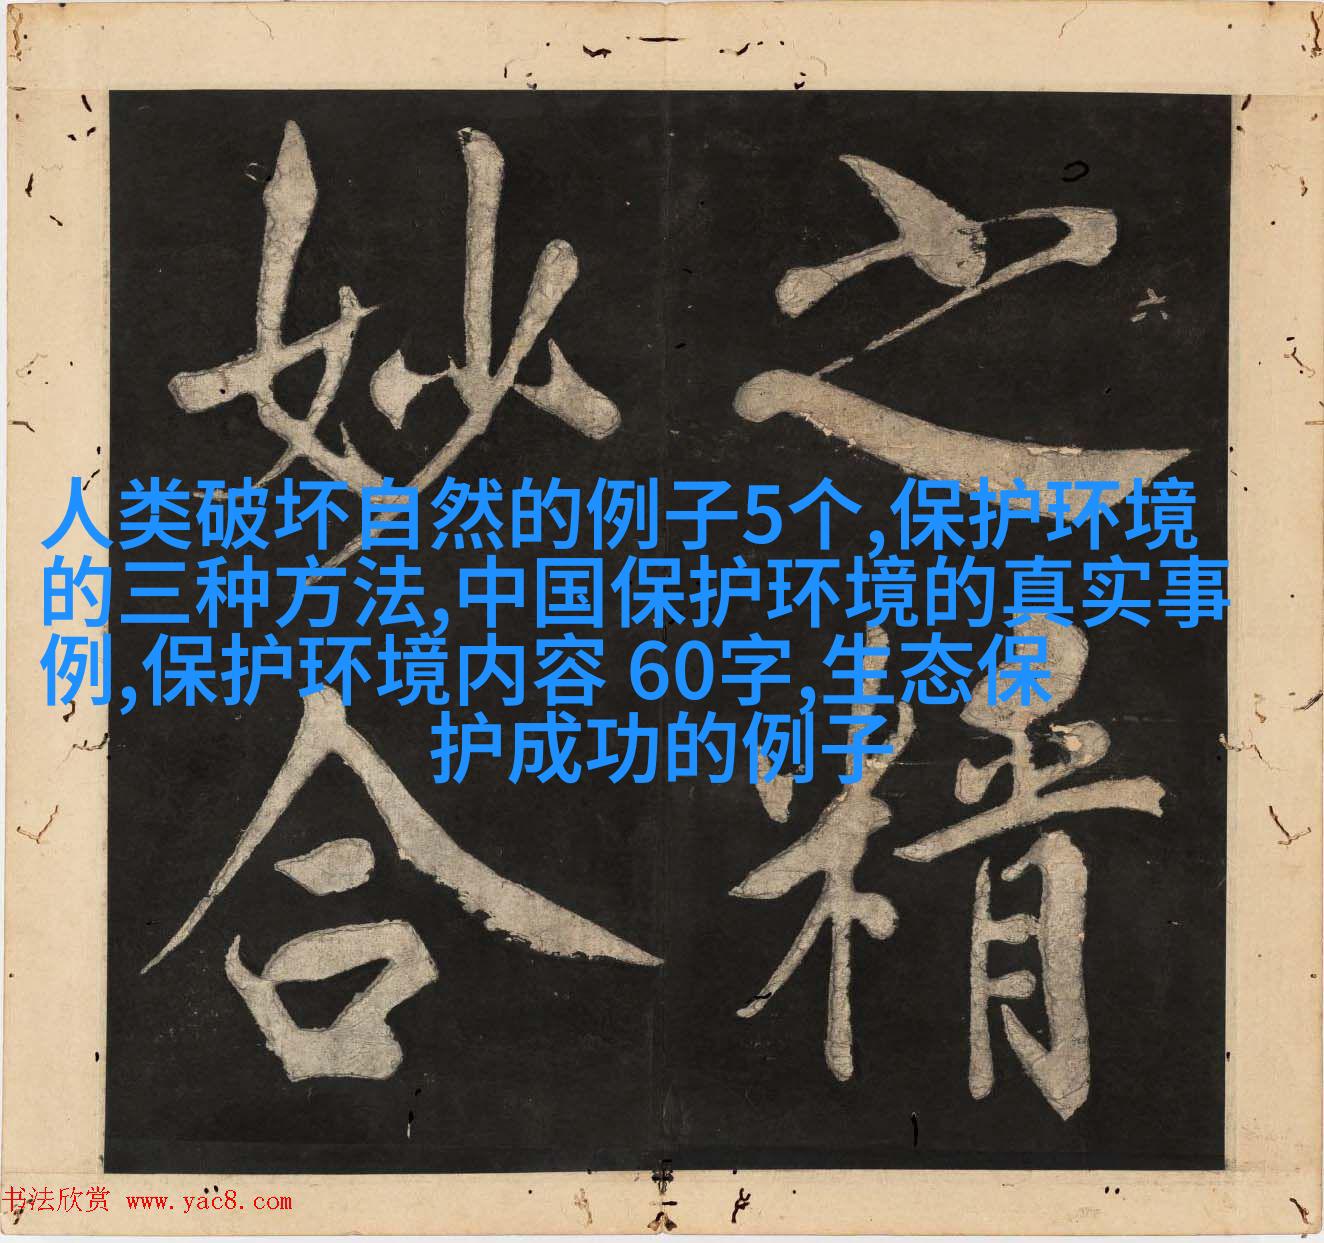 之精
妙合
六
人类破坏自然的例子5个,保护环境
的三种方法,中国保护环境的真实事
例,保护环境内容 60字,生态保
护成功的例子
书法欣赏 www.yac8.com